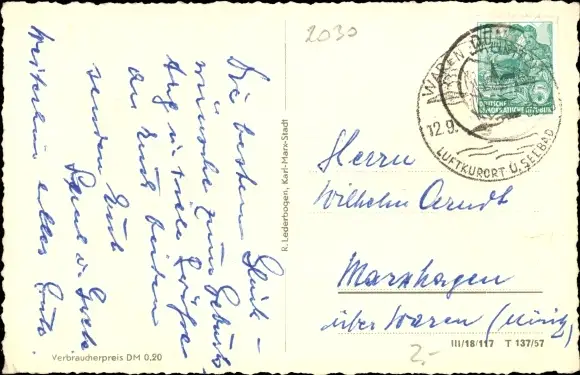 2030
Die besten Glück-
wünsche zum Geburts-
tag u. viele Grüße
an Euch beiden
senden Euch
Paul u.
weiterhin alles Gute.
Verbraucherpreis DM 0,20
R. Lederbogen, Karl-Marx-Stadt
WAREN-MÜRITZ
12.9.
LUFTKURORT U. SEEBAD
DEUTSCHE
DEMOKRATISCHE REPUBLIK
Herrn
Wilhelm Arndt
Marxhagen
über Waren (Müritz)
III/18/117 T 137/57
2.-